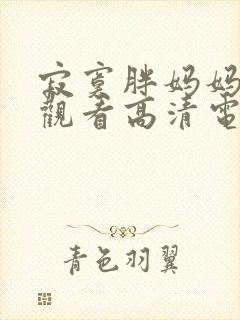 寂寞胖妈妈
觀看高清電
青色羽翼